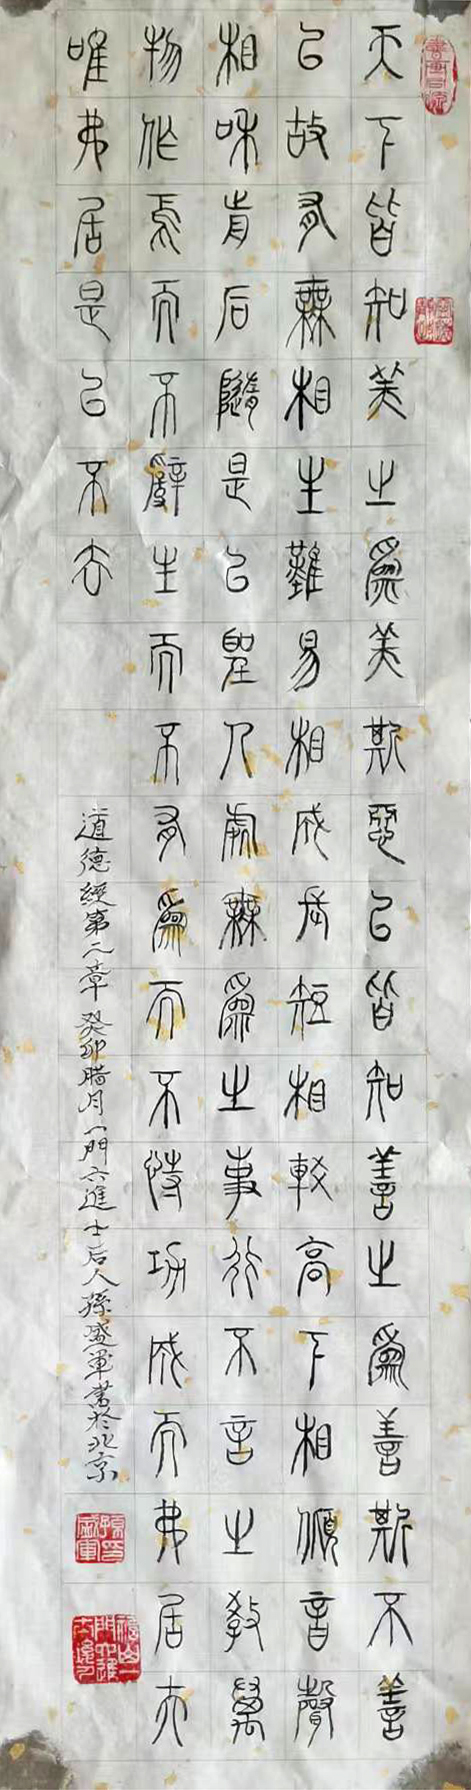 天下皆知美之為美斯惡已皆知善之為善斯不善
已故有無相生難易相成長短相較高下相傾音聲
相和前后隨是以聖人處無為之事行不言之教萬
物作焉而不辭生而不有為而不恃功成而弗居夫
唯弗居是以不去
道德經第二章 癸卯腊月一門六進士后人孫盛軍書於北京